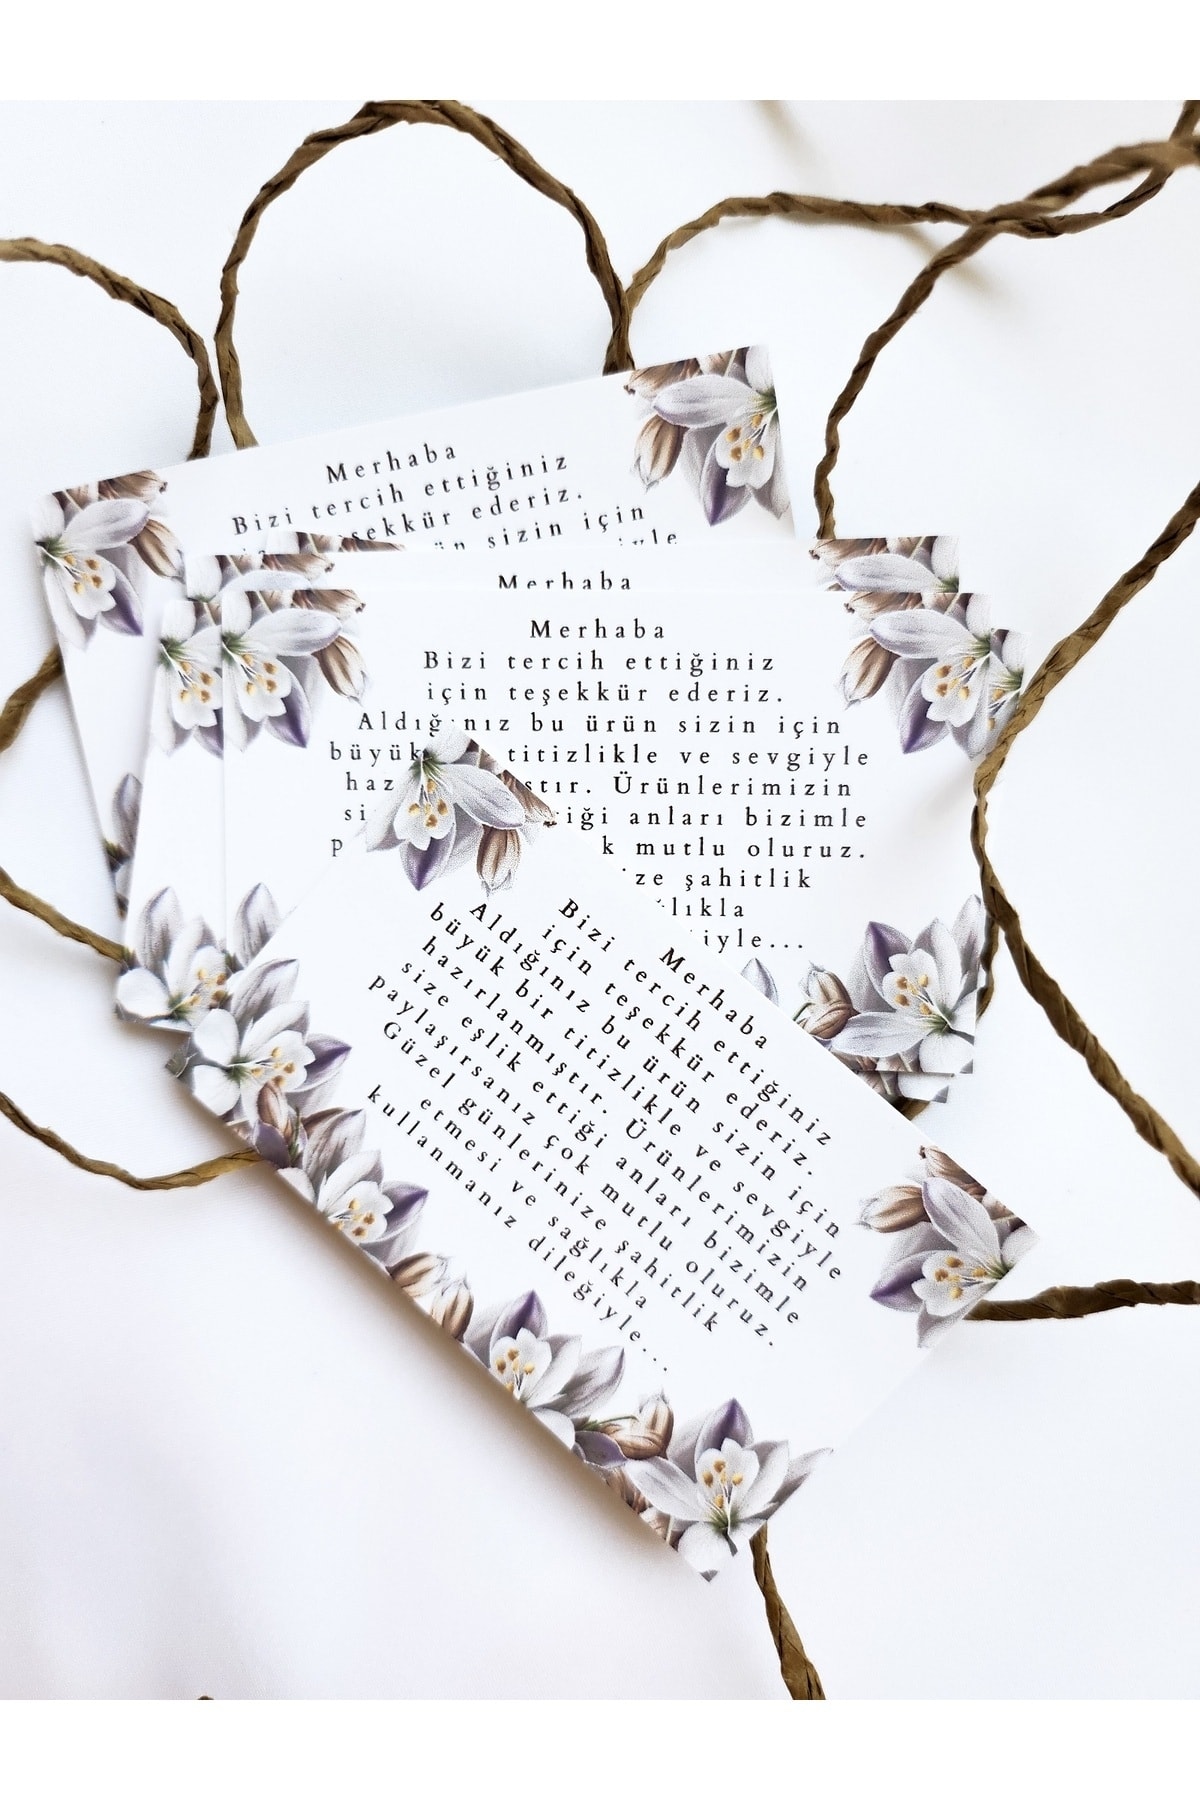 Merhaba
Bizi tercih ettiğiniz
şekkür ederiz.
sizin için
Merhaba
Merhaba
Bizi tercih ettiğiniz
için teşekkür ederiz.
Aldığınız bu ürün sizin için
büyük titizlikle ve sevgiyle
haz ıştır. Ürünlerimizin
si iği anları bizimle
p k mutlu oluruz.
ze şahitlik
lıkla
iyle...
Merhaba
Bizi tercih ettiğiniz
için teşekkür ederiz.
Aldığınız bu ürün sizin için
büyük bir titizlikle ve sevgiyle
hazırlanmıştır. Ürünlerimizin
size eşlik ettiği anları bizimle
paylaşırsanız çok mutlu oluruz.
Güzel günlerinize şahitlik
etmesi ve sağlıkla
kullanmanız dileğiyle...